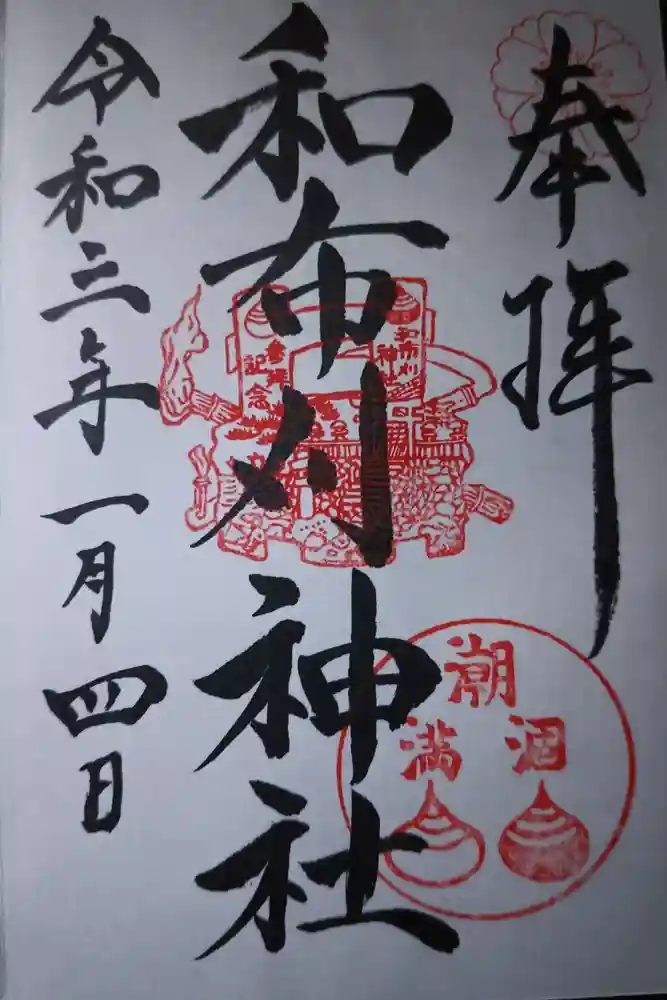 奉拝
和布刈神社
令和三年一月四日
和布刈
神社
参拝
記念
潮
涸
満